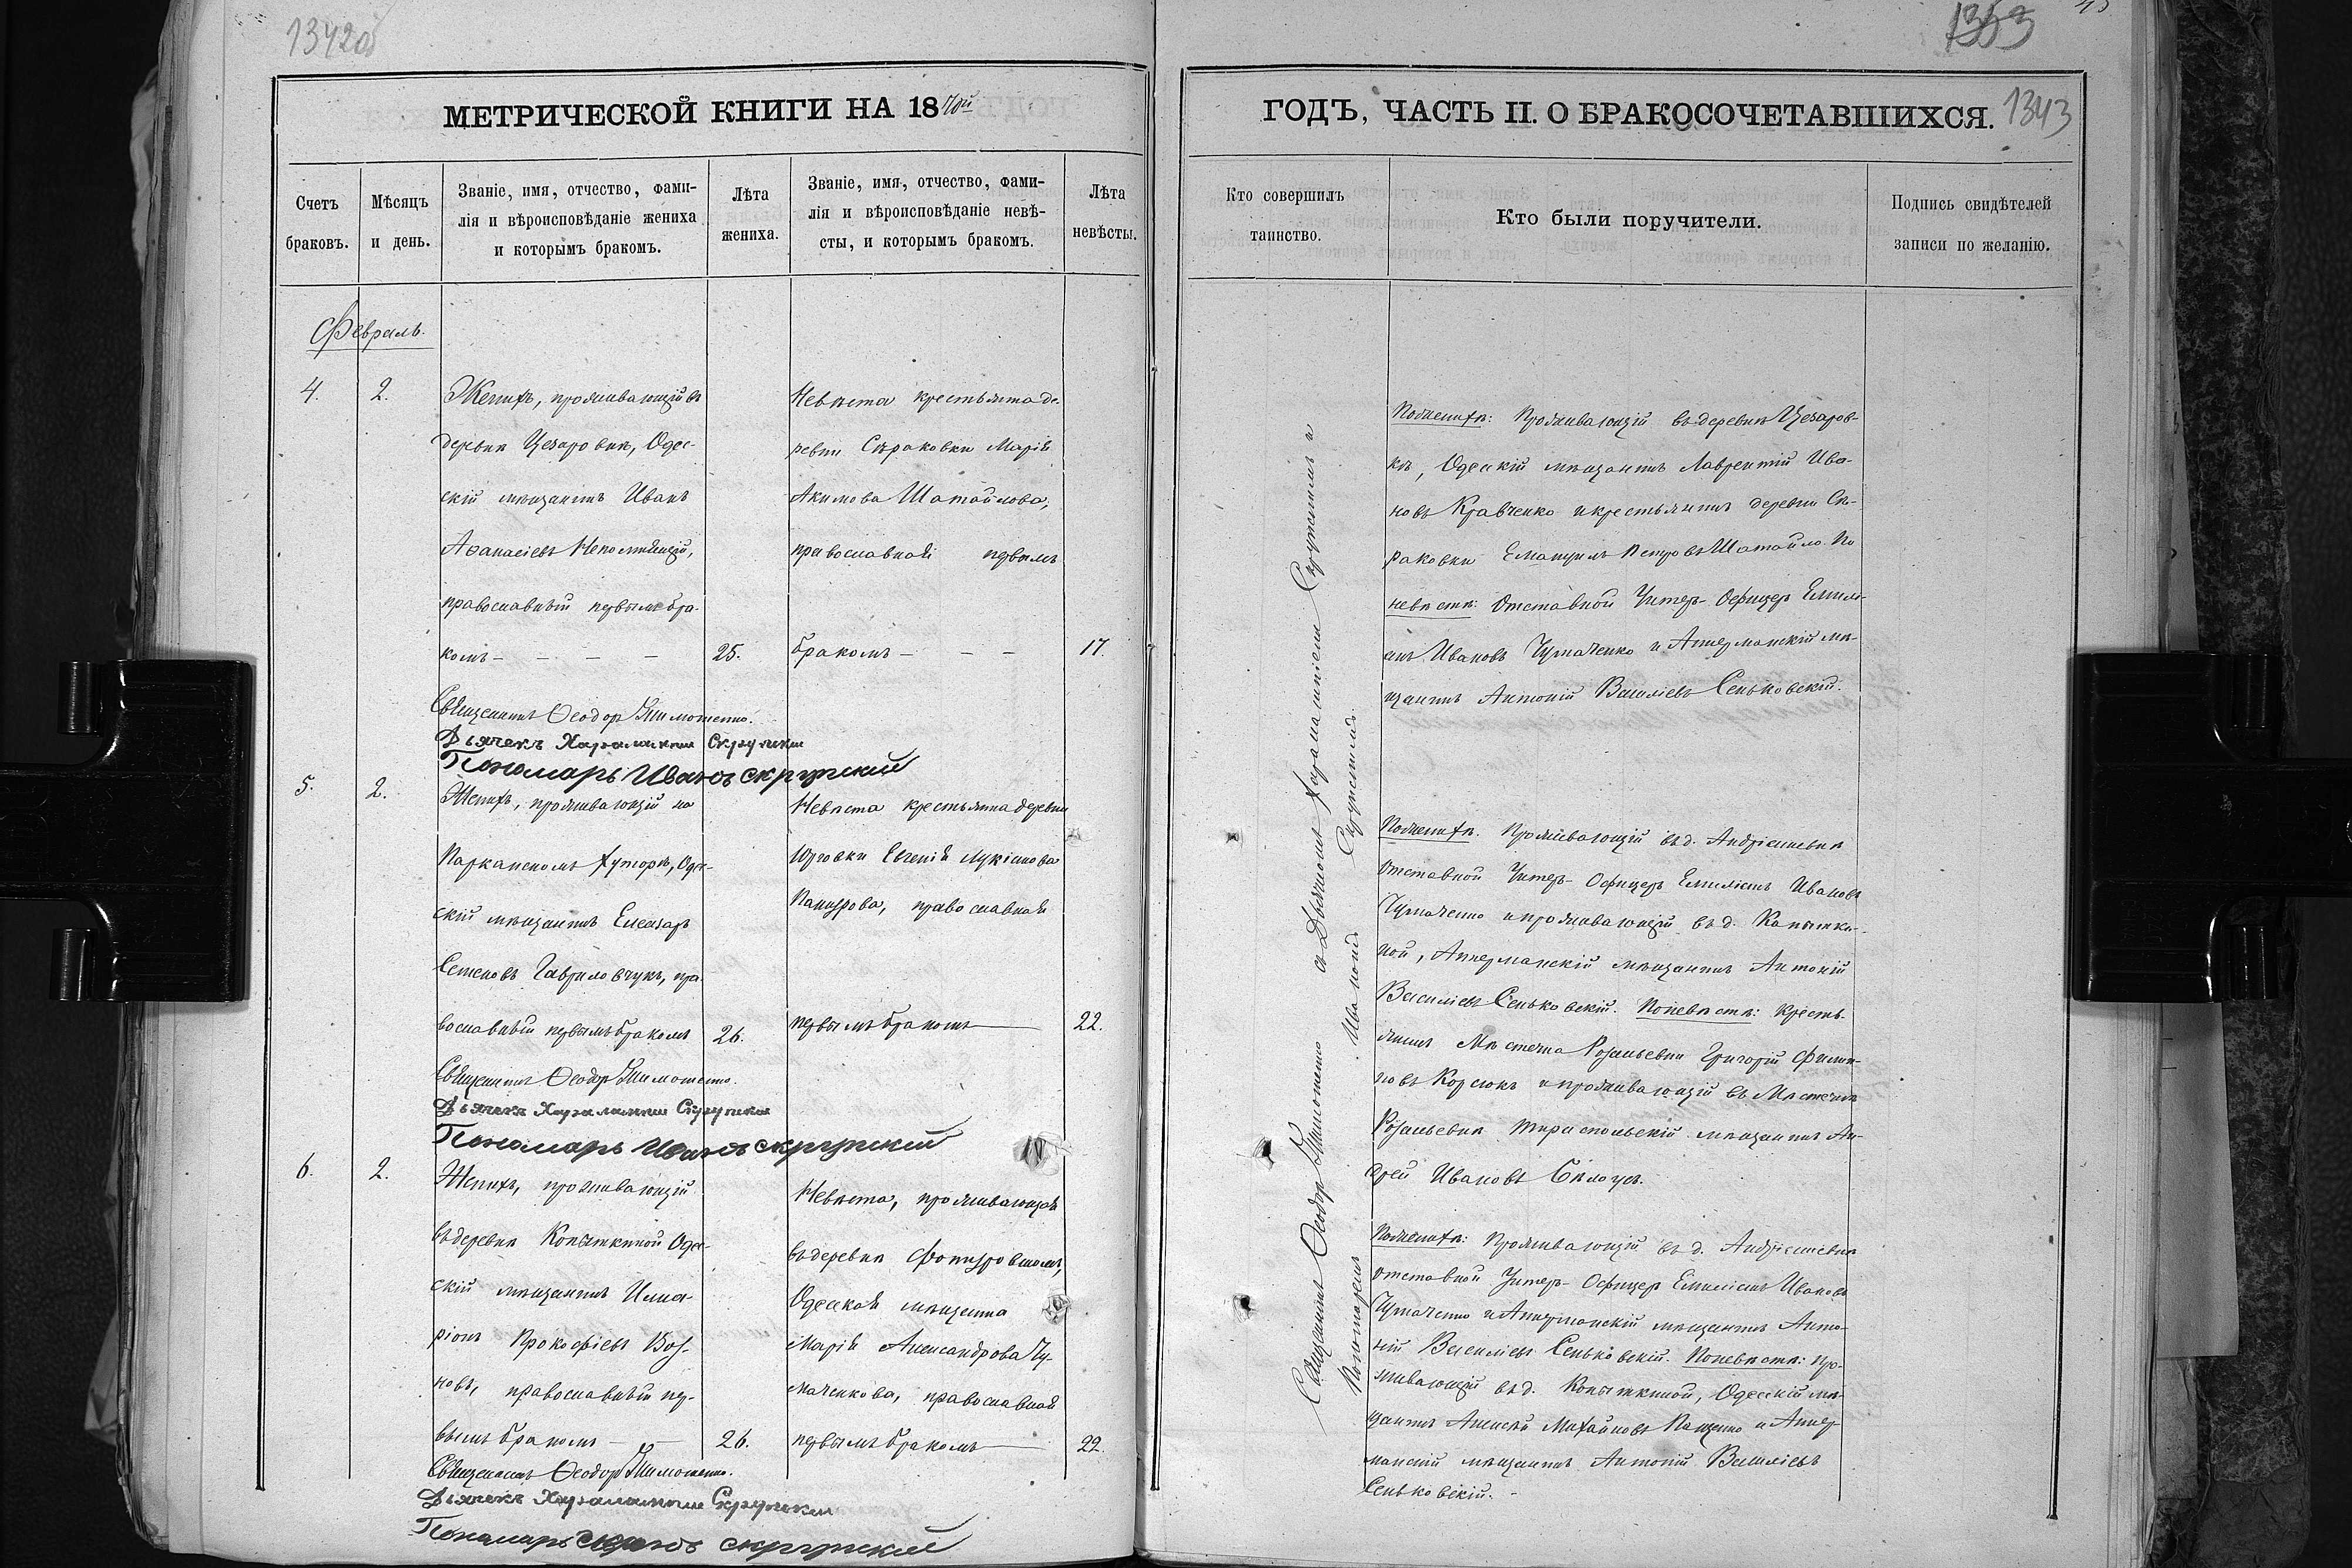 1342об
МЕТРИЧЕСКОЙ КНИГИ НА 1870й
Счетъ браковъ.
Мѣсяцъ и день.
Званіе, имя, отчество, фами-
лія и вѣроисповѣданіе жениха
и которымъ бракомъ.
Лѣта
жениха.
Званіе, имя, отчество, фами-
лія и вѣроисповѣданіе невѣ-
сты, и которымъ бракомъ.
Лѣта
невѣсты.
Февраль.
4.
2.
Женихъ, проживающій въ
деревнѣ Цезаровкѣ, Одес-
скій мѣщанинъ Иванъ
Аѳанасіевъ Непомнящій,
православный первымъ бра-
комъ - - - -
25.
Невѣста крестьянка де-
ревни Сѣраковки Марія
Акимова Шатайлова,
православная первымъ
бракомъ - - -
17.
Священникъ Ѳеодоръ Тимошенко.
Дьячекъ Харалампій Скрупскій
Пономарь Иванъ Скрупскій
5.
2.
Женихъ, проживающій на
Парканскомъ хуторѣ, Одес-
скій мѣщанинъ Елеазаръ
Семеновъ Гавриловчукъ, пра-
вославный первымъ бракомъ
26.
Невѣста крестьянка деревни
Юрговки Евгенія Лукіанова
православная
первымъ бракомъ
22.
Священникъ Ѳеодоръ Тимошенко.
Дьячекъ Харалампій Скрупскій
Пономарь Иванъ Скрупскій
6.
2.
Женихъ, проживающій
въ деревнѣ Копыткиной Одес-
скій мѣщанинъ Илла-
ріонъ Прокофіевъ
православный пер-
вымъ бракомъ - -
26.
Невѣста, проживающая
въ деревнѣ
Одесская мѣщанка
Марія Александрова Чу-
маченкова, православная
первымъ бракомъ
22.
Священникъ Ѳеодоръ Тимошенко.
Дьячекъ Харалампій Скрупскій
Пономарь Иванъ Скрупскій
1353
ГОДЪ, ЧАСТЬ II. О БРАКОСОЧЕТАВШИХСЯ.
1343
Кто совершилъ
таинство.
Кто были поручители.
Подпись свидѣтелей
записи по желанію.
Священникъ Ѳеодоръ Тимошенко съ Дьячкомъ Харалампіемъ Скрупскимъ и
Пономаремъ Иваномъ Скрупскимъ.
По женихѣ: Проживающій въ деревнѣ Цезаров-
кѣ, Одесскій мѣщанинъ Лаврентій Ива-
новъ Кравченко и крестьянинъ деревни Сѣ-
раковки Емануилъ Петровъ Шатайло. По
невѣстѣ: Отставной Унтеръ-Офицеръ Емили-
анъ Ивановъ Чумаченко и Аккерманскій мѣ-
щанинъ Антоній Василіевъ Сеньковскій.
По женихѣ. Проживающій въ д. Андріяшевкѣ
Отставной Унтеръ-Офицеръ Емиліанъ Ивановъ
Чумаченко и проживающій въ д. Копытки-
ной, Аккерманскій мѣщанинъ Антоній
Василіевъ Сеньковскій. По невѣстѣ: Кресть-
янинъ Мѣстечка Розаліевки Григорій Филип-
повъ Корсюкъ и проживающій въ Мѣстечкѣ
Розаліевкѣ Тираспольскій мѣщанинъ Ан-
дрей Ивановъ Бѣлоусъ.
По женихѣ: Проживающій въ д. Андріяшевкѣ
отставной Унтеръ-Офицеръ Емиліанъ Ивановъ
Чумаченко и Аккерманскій мѣщанинъ Анто-
ній Василіевъ Сеньковскій. По невѣстѣ: про-
живающій въ д. Копыткиной, Одесскій мѣ-
щанинъ Алексѣй Михайловъ Пащенко и Аккер-
манскій мѣщанинъ Антоній Василіевъ
Сеньковскій. -